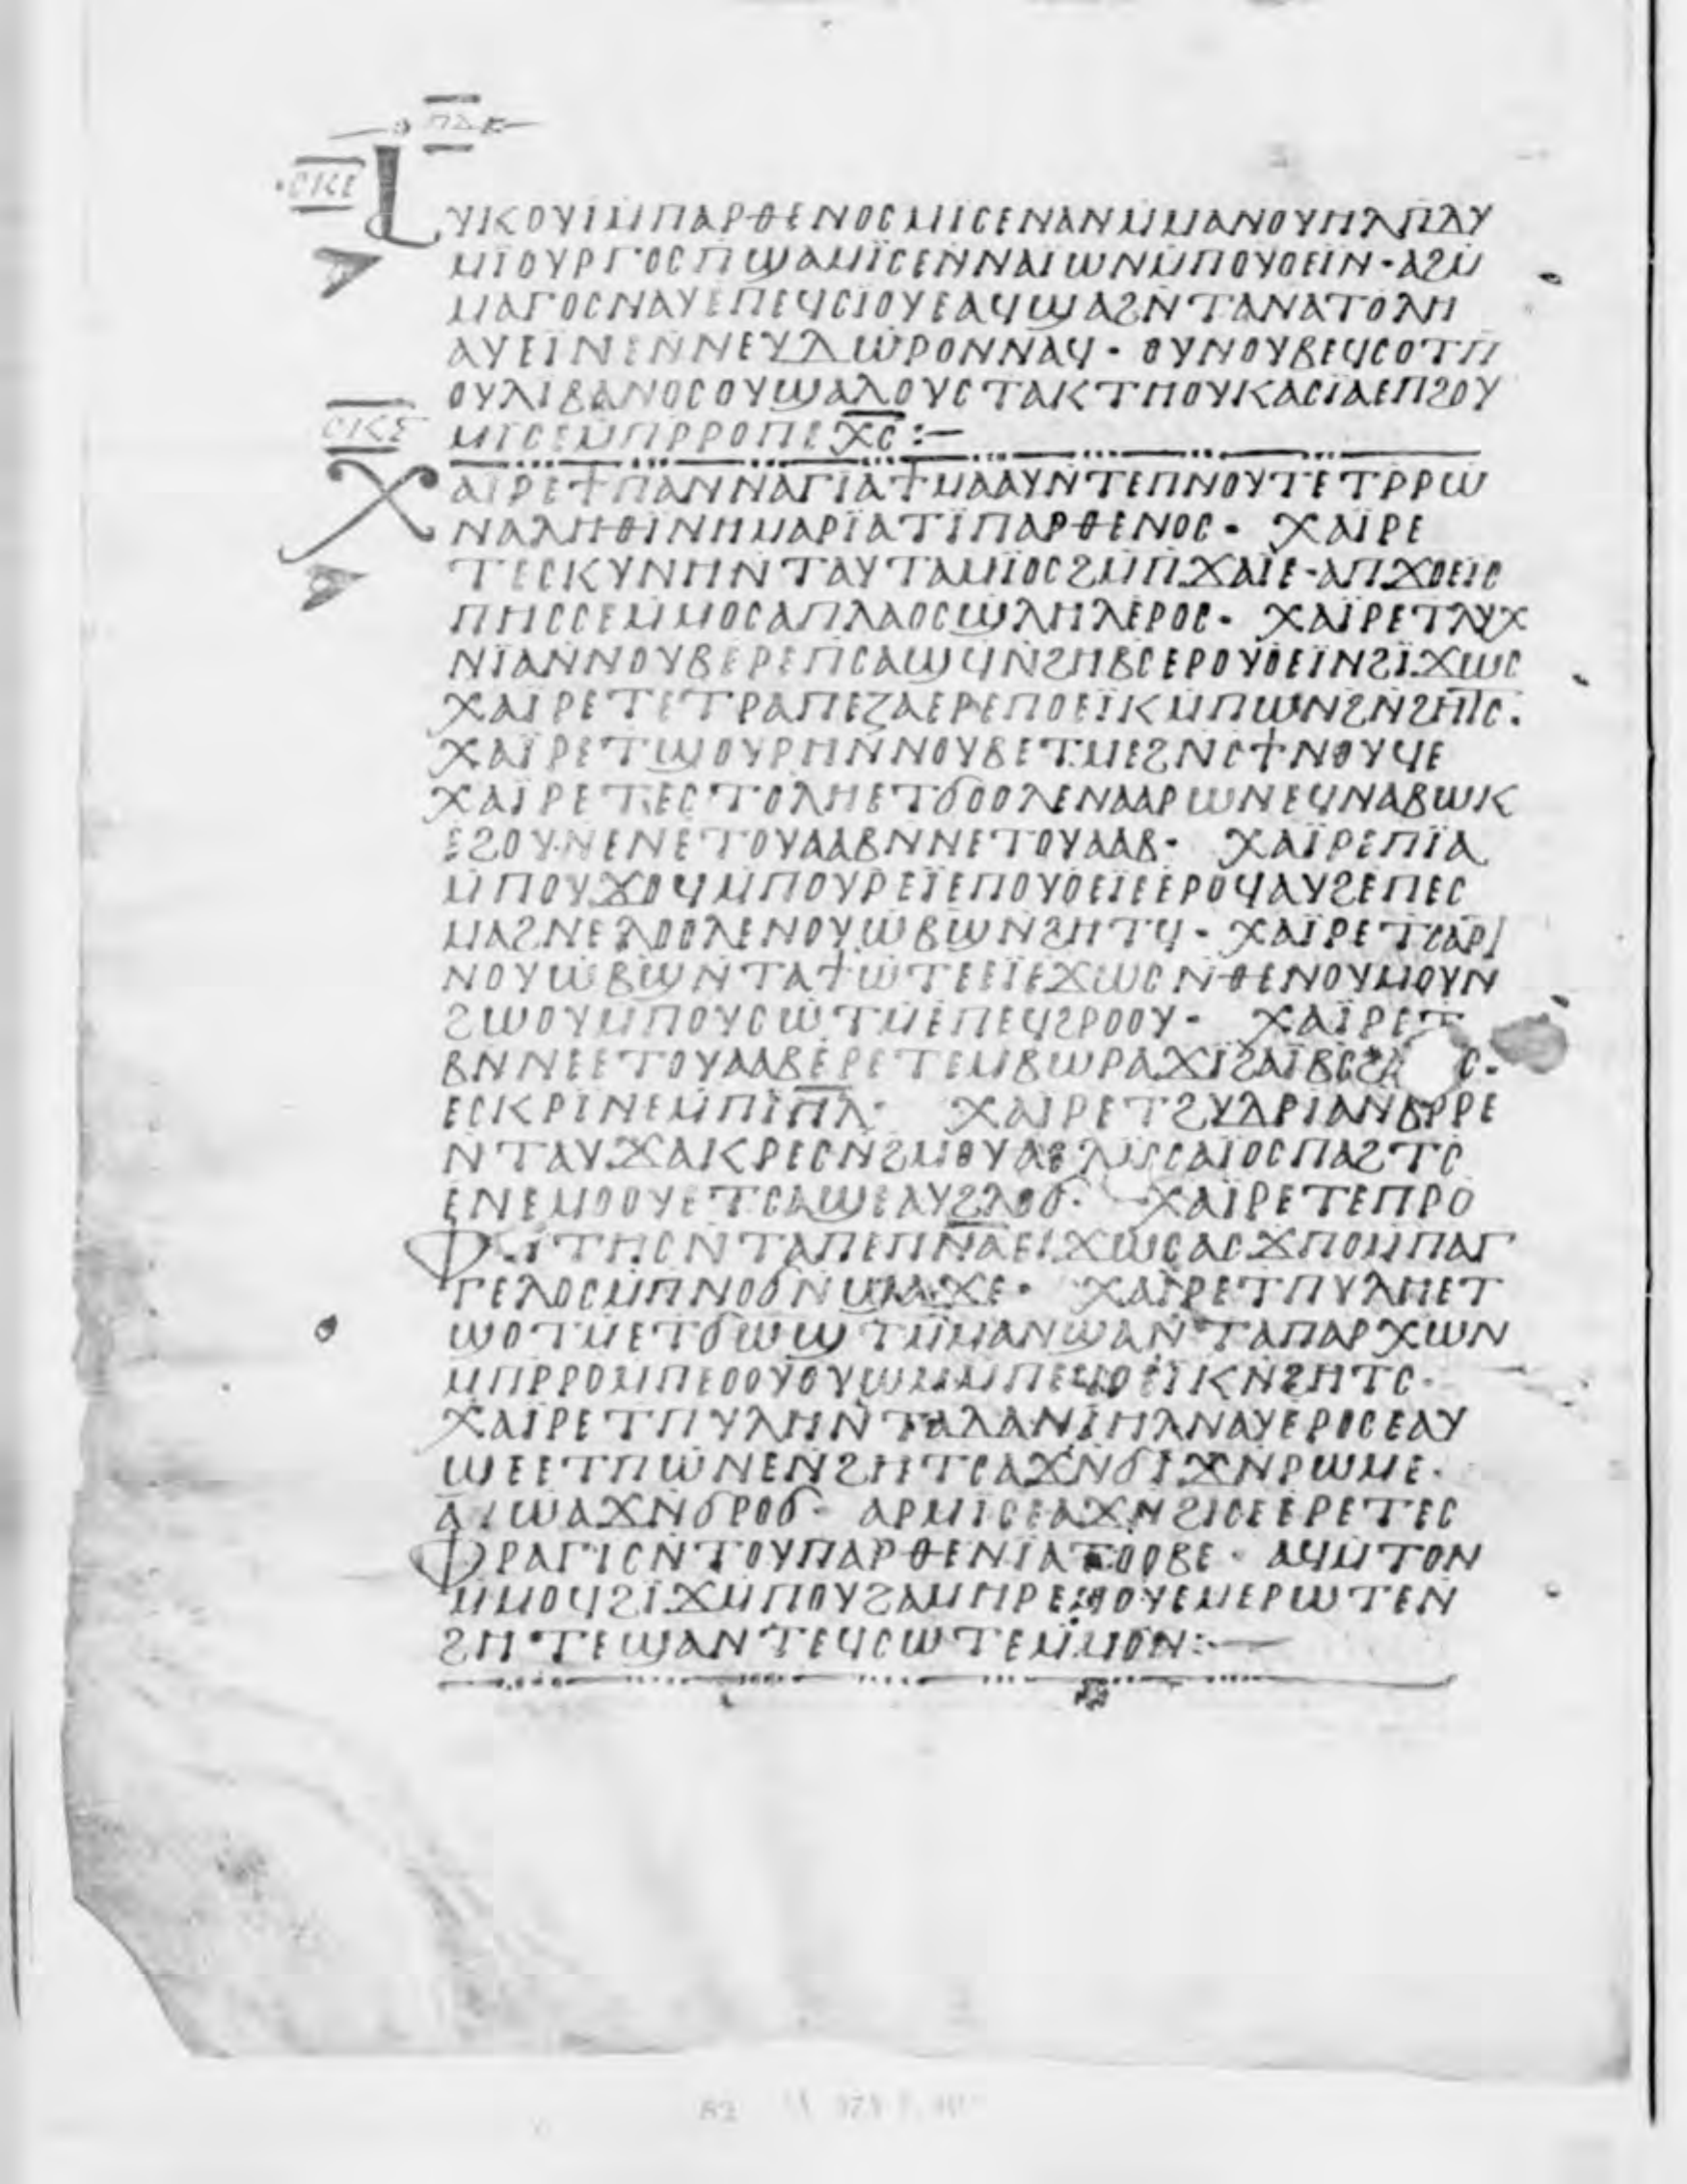 ⲠⲆ
ⲤⲔⲈ
ⲖⲨⲔⲞⲨⲒ̈ⲘⲠⲀⲢⲐⲈⲚⲞⲤⲘⲒⲤⲈⲚⲀⲚⲘⲘⲀⲚⲞⲨⲎⲖⲠⲆⲨ
ⲘⲒ̈ⲞⲨⲢⲄⲞⲤⲠϢⲀⲘⲒ̈ⲤⲈⲚⲚⲀⲒⲰⲚⲘⲠⲞⲨⲞⲈⲒⲚ · ⲀϨⲘ
ⲘⲀⲄⲞⲤⲚⲀⲨⲈⲠⲈϤⲤⲒⲞⲨⲈⲀϤϢⲀϨⲚⲦⲀⲚⲀⲦⲞⲖⲎ
ⲀⲨⲈⲒ̈ⲚⲈⲚⲚⲈⲨⲆⲰⲢⲞⲚⲚⲀϤ · ⲞⲨⲚⲞⲨⲂⲈϤⲤⲞⲦⲠ
ⲞⲨⲖⲒⲂⲀⲚⲞⲤⲞⲨϢⲀⲖⲞⲨⲤⲦⲀⲔⲦⲎⲞⲨⲔⲀⲤⲒ̈ⲀⲈⲠϨⲞⲨ
ⲘⲒⲤⲈⲘⲠⲢⲢⲞⲠⲈⲬ̅Ⲥ̅ :–
ⲤⲔⲊ
ⲬⲀⲒ̈ⲢⲈϮⲠⲀⲚⲚⲀⲄⲒ̈ⲀϮⲘⲀⲀⲨⲚⲦⲈⲠⲚⲞⲨⲦⲈⲦⲢⲢⲰ
ⲚⲀⲖⲎⲐⲒⲚⲎⲘⲀⲢⲒ̈ⲀⲦⲒ̈ⲠⲀⲢⲐⲈⲚⲞⲤ · ⲬⲀⲒ̈ⲢⲈ
ⲦⲈⲤⲔⲨⲚⲎⲚⲦⲀⲨⲦⲀⲘⲒ̈ⲞⲤϨⲘⲠϪⲀⲒ̈Ⲉ · ⲀⲠϪⲞⲈⲒⲤ
ⲠⲎⲤⲤⲈⲘⲘⲞⲤⲀⲠⲖⲀⲞⲤϢⲖⲎⲖⲈⲢⲞⲤ · ⲬⲀⲒ̈ⲢⲈⲦⲖⲨⲬ
ⲚⲒ̈ⲀⲚⲚⲞⲨⲂⲈⲢⲈⲠⲤⲀϢϤⲚϨⲎⲂⲤⲈⲢⲞⲨⲞⲈⲒ̈ⲚϨⲒ̈ϪⲰⲤ
ⲬⲀⲒ̈ⲢⲈⲦⲈⲦⲢⲀⲠⲈⲌⲀⲈⲢⲈⲠⲞⲈⲒ̈ⲔⲘⲠⲰⲚϨⲚϨⲎⲦⲤ ·
ⲬⲀⲒ̈ⲢⲈⲦϢⲞⲨⲢⲎⲚⲚⲞⲨⲂⲈⲦⲘⲈϨⲚⲤϮⲚⲞⲨϤⲈ
ⲬⲀⲒ̈ⲢⲈⲦⲈⲤⲦⲞⲖⲎⲈⲦϬⲞⲞⲖⲈⲚⲀⲀⲢⲰⲚⲈϤⲚⲀⲂⲰⲔ
ⲈϨⲞⲨⲚⲈⲚⲈⲦⲞⲨⲀⲀⲂⲚⲚⲈⲦⲞⲨⲀⲀⲂ · ⲬⲀⲒ̈ⲢⲈⲠⲒ̈Ⲁ
ⲘⲠⲞⲨϪⲞϤⲘⲠⲞⲨⲢⲈⲒ̈ⲈⲠⲞⲨⲞⲈⲒ̈ⲈⲈⲢⲞϤⲀⲨϨⲈⲠⲈⲤ
ⲘⲀϨⲚⲈⲖⲞⲞⲖⲈⲚⲞⲨⲰⲂϢⲚϨⲎⲦϤ · ⲬⲀⲒ̈ⲢⲈⲦⲤⲀⲢ
ⲚⲞⲨⲰⲂϢⲚⲦⲀϮⲰⲦⲈⲈⲒ̈ⲈϪⲰⲤⲚⲐⲈⲚⲞⲨⲘⲞⲨⲚ
ϨⲰⲞⲨⲘⲠⲞⲨⲤⲰⲦⲘⲈⲠⲈϤϨⲢⲞⲞⲨ · ⲬⲀⲒ̈ⲢⲈⲦ
ⲂⲚⲚⲈⲈⲦⲞⲨⲀⲀⲂⲈⲢⲈⲦⲈⲘⲂⲰⲢⲀϪⲒ̈ϨⲀⲒ̈ⲂⲤ
ⲈⲤⲔⲢⲒⲚⲈⲘⲠⲒ̅Ⲏ̅Ⲗ̅ · ⲬⲀⲒ̈ⲢⲈⲦϨⲨⲆⲢⲒⲀⲚⲂⲢⲢⲈ
ⲚⲦⲀⲨϪⲀⲔⲢⲈⲤⲚϨⲘⲞⲨⲀⲈⲖⲒⲤⲤⲀⲒ̈ⲞⲤⲠⲀϨⲦⲤ
ⲈⲚⲈⲘⲞⲞⲨⲈⲦⲤⲀϢⲈⲀⲨϨⲖⲞϬ · ⲬⲀⲒ̈ⲢⲈⲦⲈⲠⲢⲞ
ⲪⲎⲦⲎⲤⲚⲦⲀⲠⲈⲠⲚ̅Ⲁ̅ⲈⲒϪⲰⲤⲀⲤϪⲠⲞⲘⲠⲀⲄ
ⲄⲈⲖⲞⲤⲘⲠⲚⲞϬⲚϢⲀϪⲈ · ⲬⲀⲒ̈ⲢⲈⲦⲠⲨⲖⲎⲈⲦ
ϢⲞⲦⲘⲈⲦϬⲰϢⲦⲘⲘⲀⲚϢⲀⲚⲦⲀⲠⲀⲢⲬⲰⲚ
ⲘⲠⲢⲢⲞⲘⲠⲈⲞⲞⲨⲞⲨⲰⲘⲘⲠⲈϤⲞⲈⲒ̈ⲔⲚϨⲎⲦⲤ ·
ⲬⲀⲒ̈ⲢⲈⲦⲠⲨⲖⲎⲚⲦⲀⲆⲀⲚⲒⲎⲖⲚⲀⲨⲈⲢⲞⲤⲈⲀⲨ
ϢⲈⲈⲦⲠⲰⲚⲈⲚϨⲎⲦⲤⲀϪⲚϬⲒϪⲚⲢⲰⲘⲈ ·
ⲀⲒⲰⲀϪⲚϬⲢⲞϬ · ⲀⲢⲘⲒ̈ⲤⲈⲀϪⲚϨⲒⲤⲈⲈⲢⲈⲦⲈⲤ
ⲪⲢⲀⲄⲒⲤⲚⲦⲞⲨⲠⲀⲢⲐⲈⲚⲒ̈ⲀⲦⲞⲞⲂⲈ · ⲀϤⲘⲦⲞⲚ
ⲘⲘⲞϤϨⲒ̈ϪⲘⲠⲞⲨϨⲀⲘⲎⲢⲈϤⲞⲨⲈⲘⲈⲢⲰⲦⲈⲚ
ϨⲎⲦⲈϢⲀⲚⲦⲈϤⲤⲰⲦⲈⲘⲘⲞⲚ :–